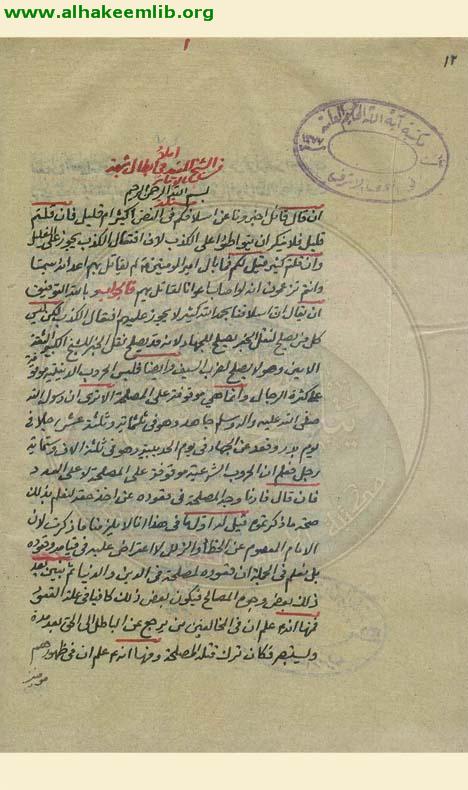 www.alhakeemlib.org
١٢
مكتبة آية الله الحكيم العامة
بسم الله الرحمن الرحيم
ان قال قائل اخبرونا عن اسلافكم فى النص اكثير ام قليل فان قلتم
قليل فلا ينكر ان يتواطؤا على الكذب لان افتعال الكذب يجوز على القليل
وان قلتم كثير قيل لكم فما بال امير المؤمنين لم يقاتل بهم اعداءه سيما
وانتم تزعمون انه لو اصاب اعوانا لقاتل بهم فالجواب وبالله التوفيق
ان يقال ان اسلافنا بحمد الله كثير لا يجوز عليهم افتعال الكذب لكن ليس
كل من يصلح لنقل الخبر يصلح للجهاد لانه قد يصلح لنقل الخبر الشيخ الكبير الثقة
الامين وهو لا يصلح لضرب السيف وايضا فليس الحروب الدينية موقوفة
على كثرة الرجال وانما هى موقوفة على المصلحة الا ترى ان رسول الله
صلى الله عليه واله وسلم جاهد وهو فى ثلثمائة وثلثة عشر رجلا فى
يوم بدر وقعد عن الجهاد فى يوم الحديبية وهو فى ثلثة الاف وستماية
رجل فعلم ان الحروب الشرعية موقوفة على المصلحة لا على العدد
فان قال فارنا وجه المصلحة فى قعوده عن اخذ حقه لنعلم بذلك
صحة ما ذكرتموه قيل له اول ما فى هذا انا لا يلزمنا ما ذكرت لان
الامام المعصوم عن الخطأ والزلل لا اعتراض عليه فى قيامه وقعوده
بل نعلم فى الجملة ان قعوده لمصلحة فى الدين والدنيا ثم نبين بعد
ذلك بعض وجوه المصالح فيكون بعض ذلك كافيا فى علة القعود
فمنها انه علم ان فى المخالفين من يرجع عن الباطل الى الحق بعد مدة
ويستبصر فكان ترك قتله المصلحة ومنها انه علم ان فى ظهورهم